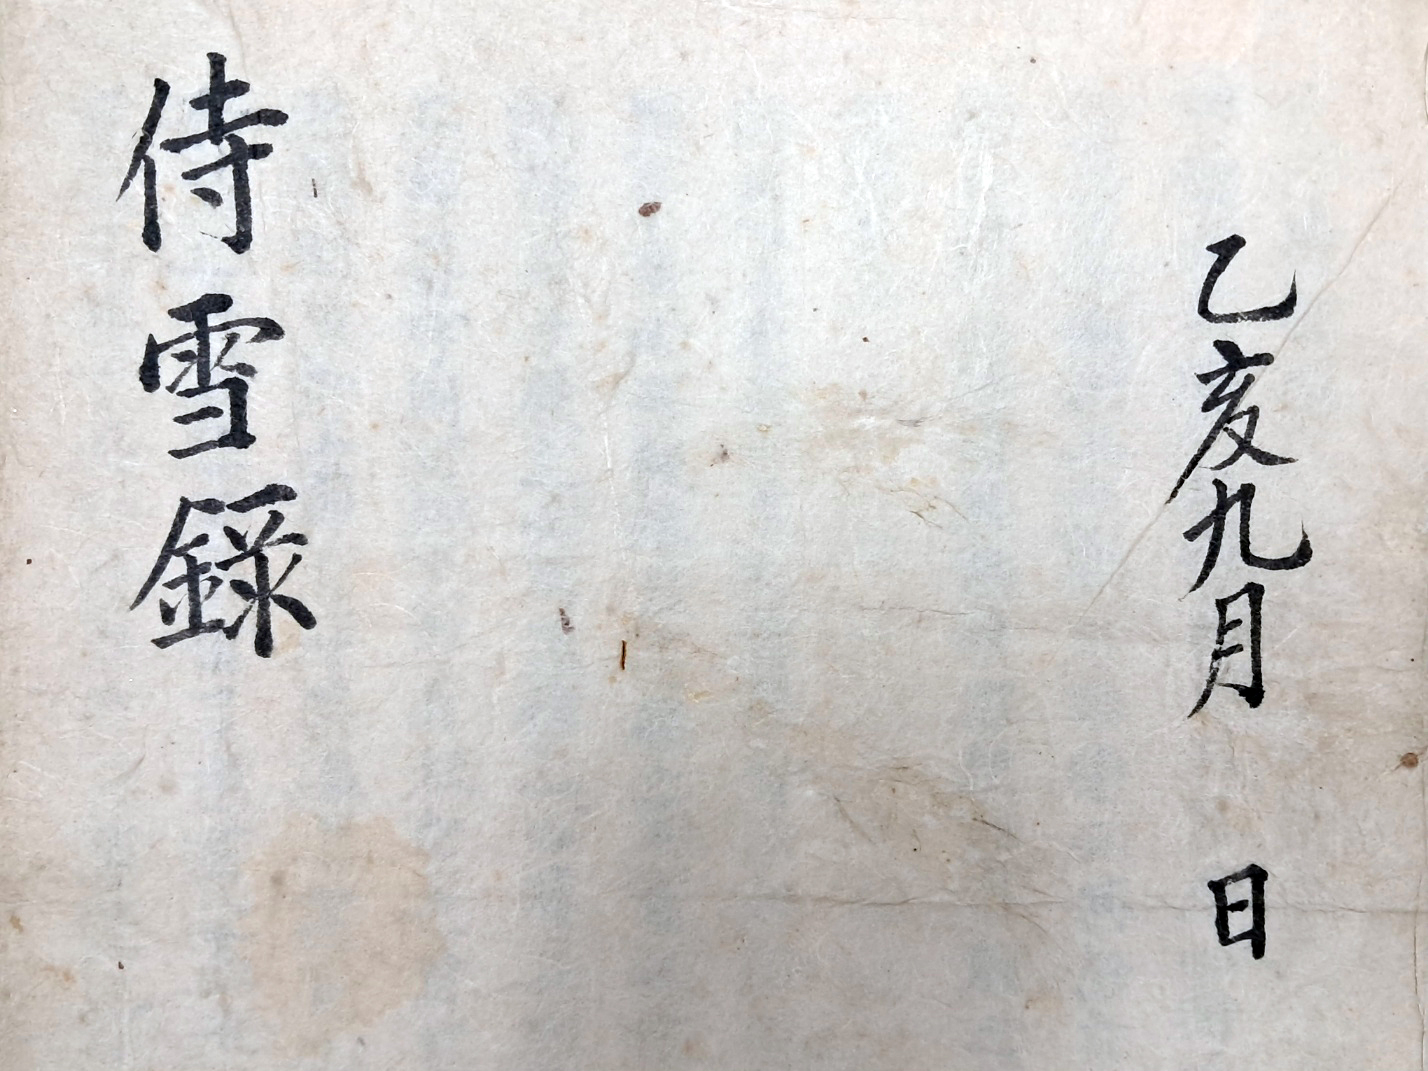 乙亥九月 日
侍雪錄